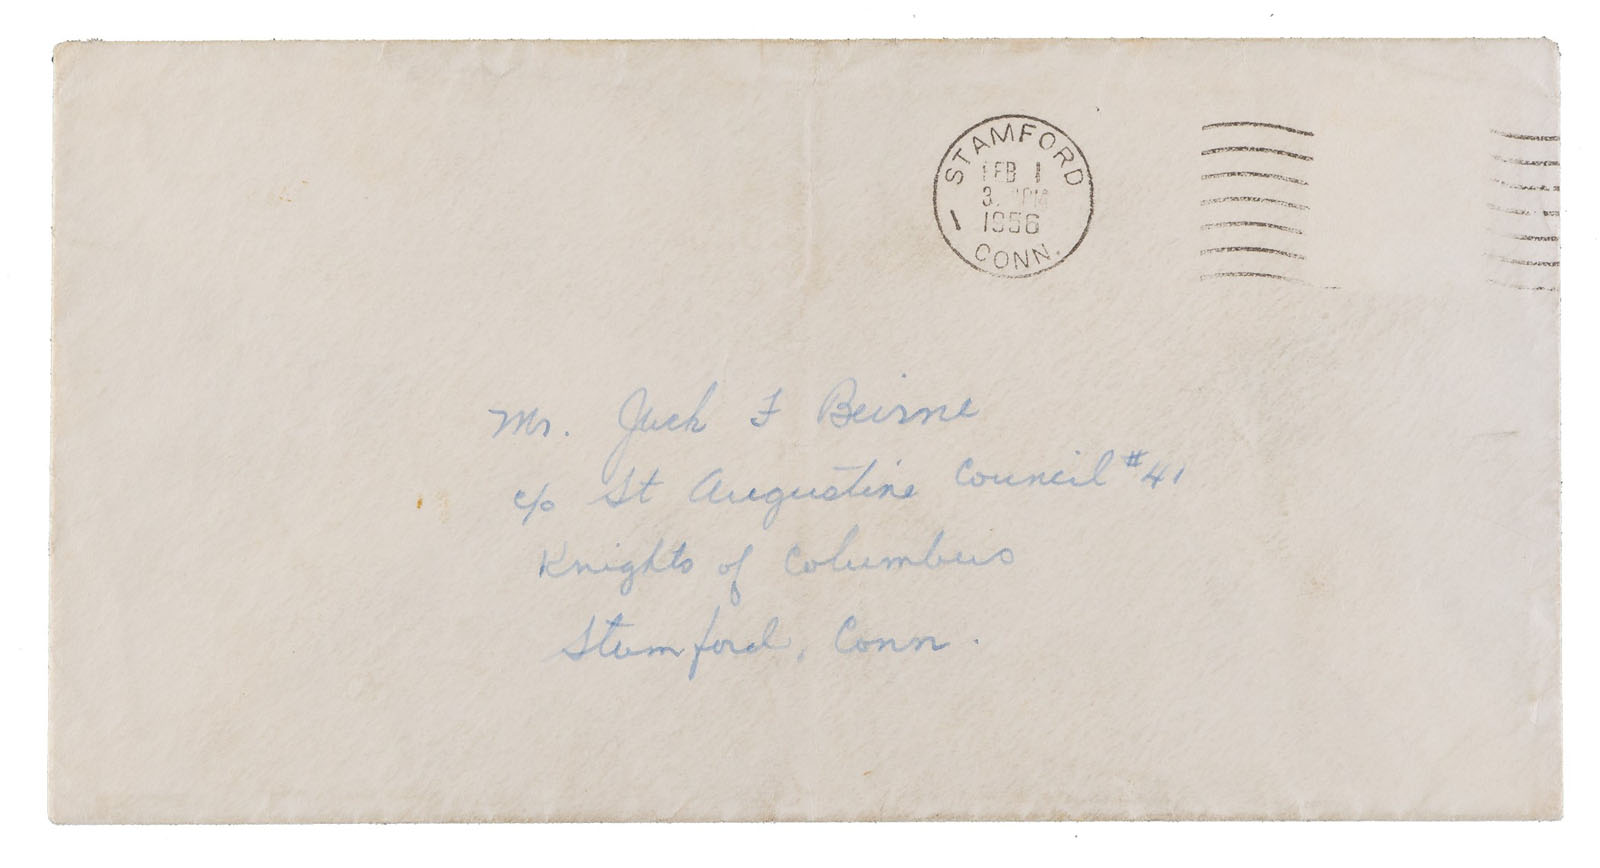 STAMFORD
FEB 1
3 PM
1956
1
CONN.
Mr. Jack F Beirne
c/o St Augustine Council #41
Knights of Columbus
Stamford, Conn.